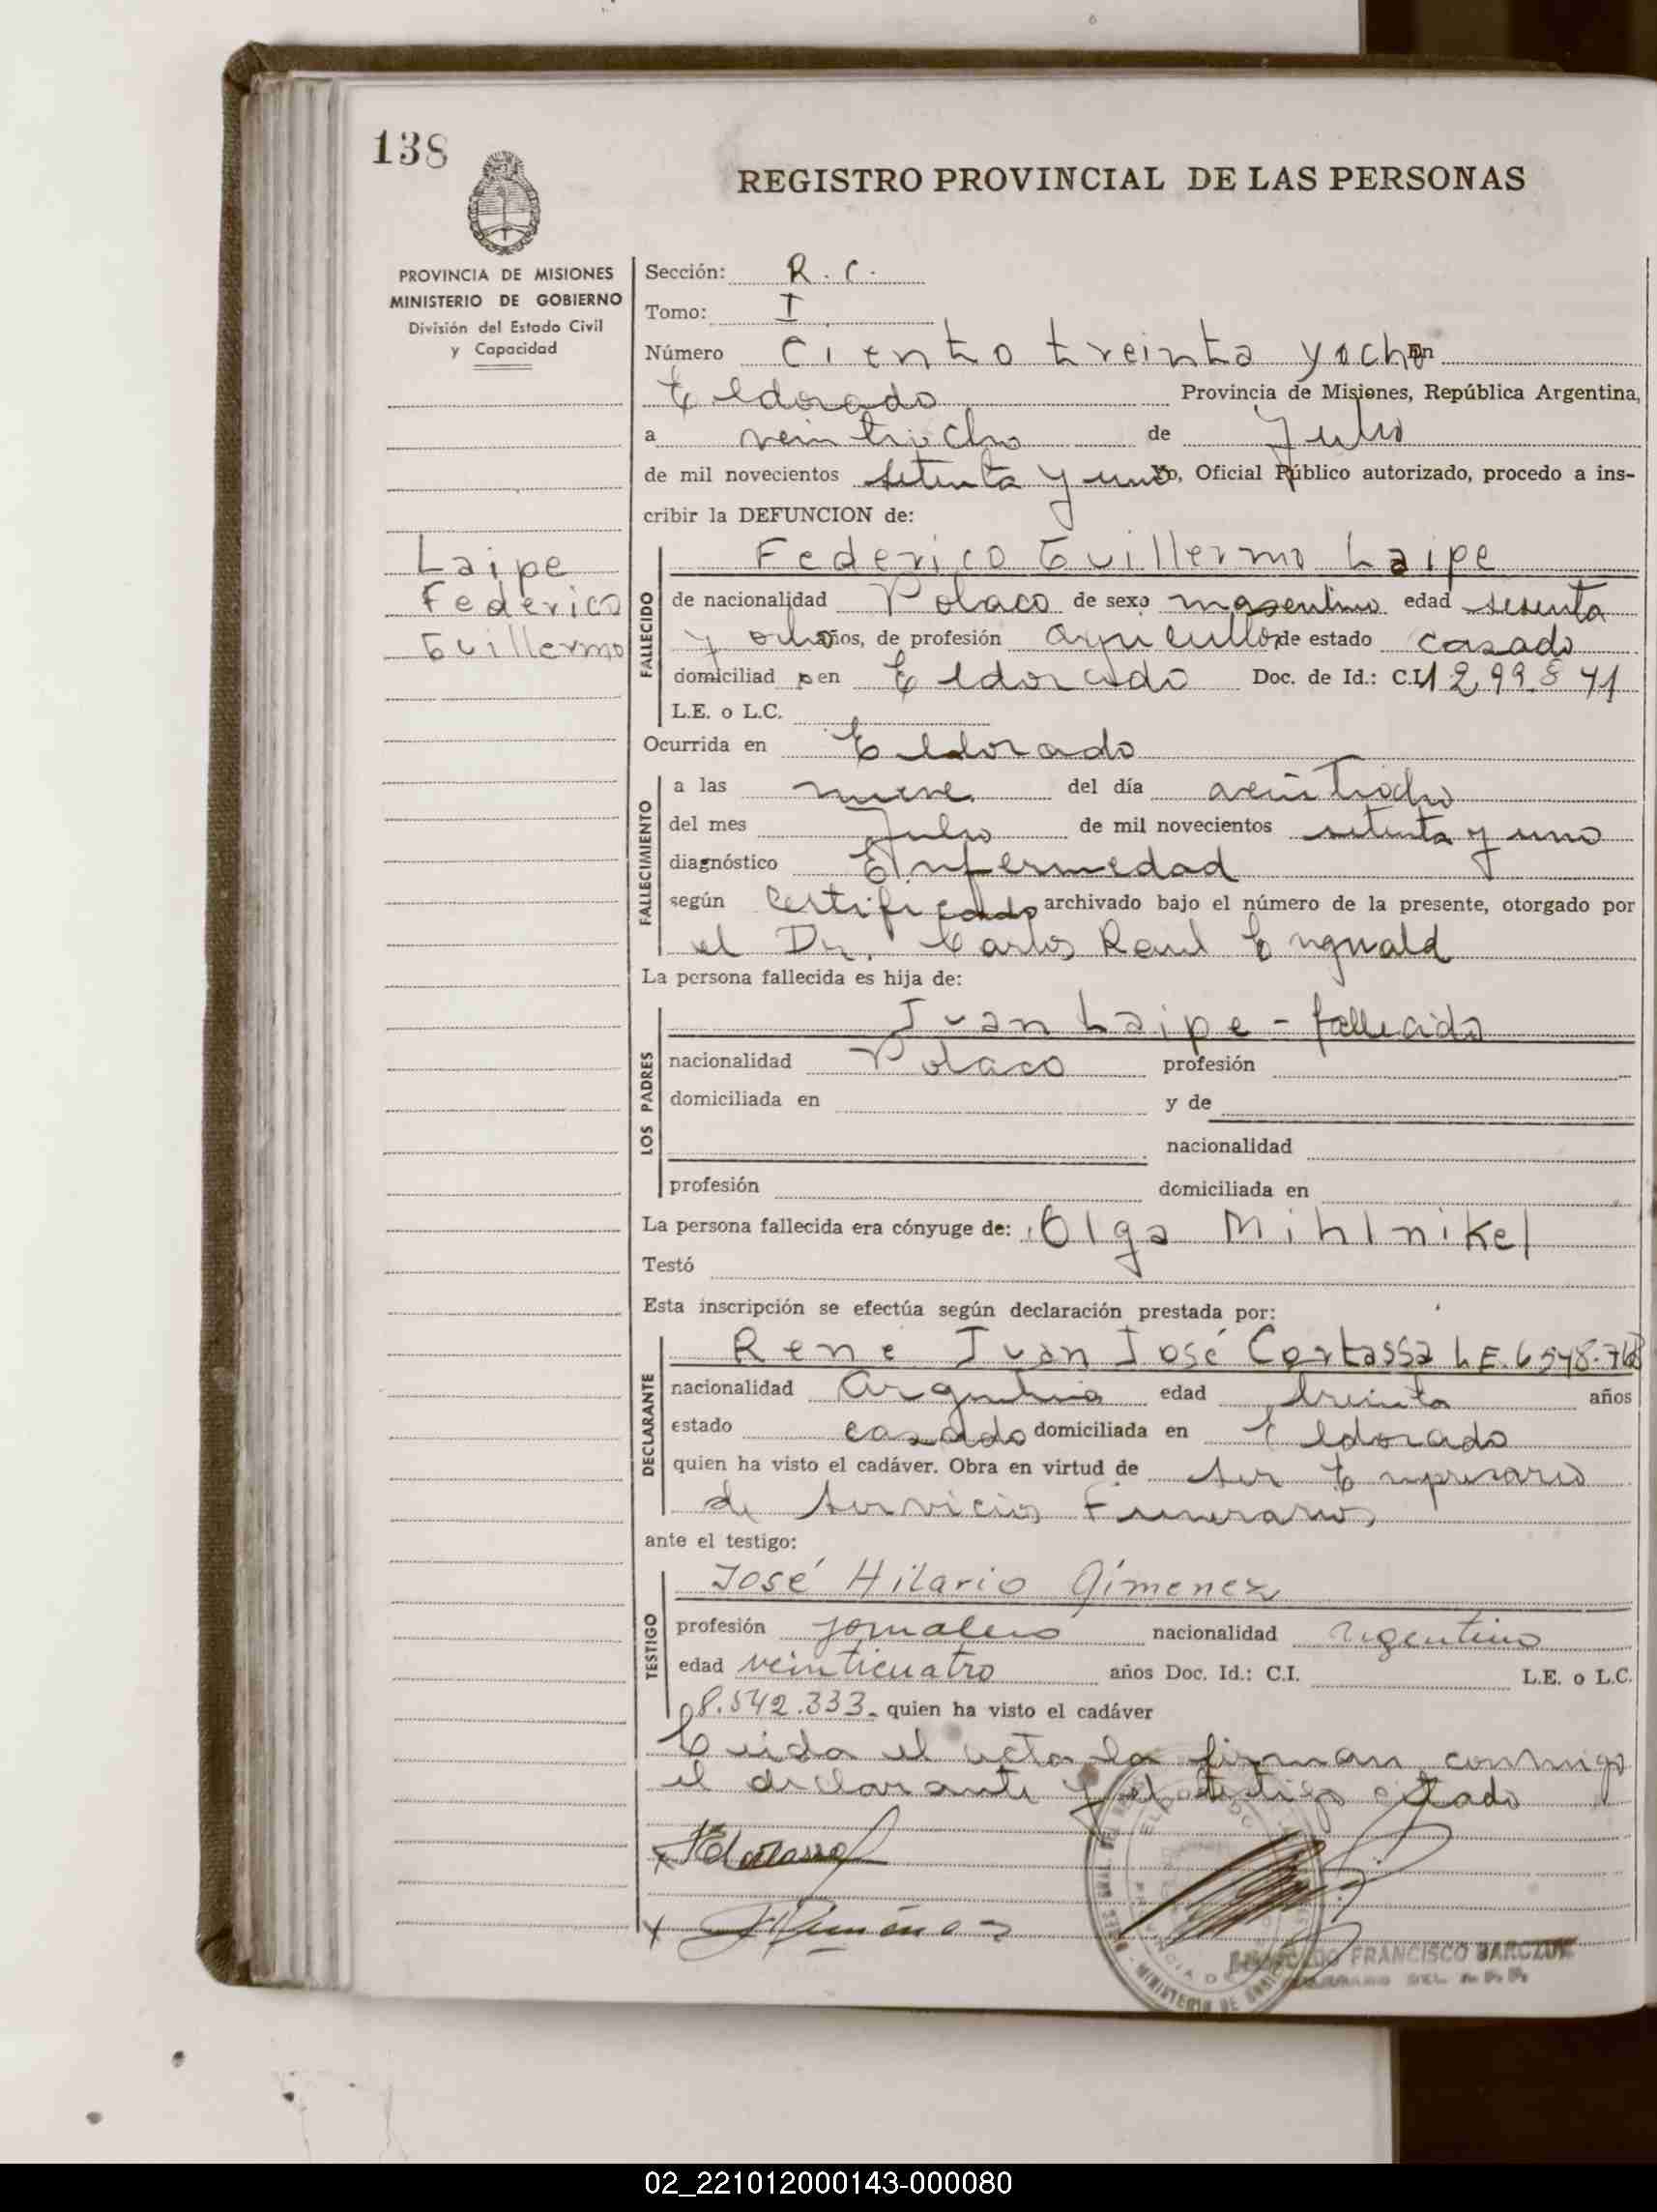 138
REGISTRO PROVINCIAL DE LAS PERSONAS
PROVINCIA DE MISIONES
MINISTERIO DE GOBIERNO
División del Estado Civil
y Capacidad
Laipe
Federico
Guillermo
Sección: R. C.
Tomo: I
Número Ciento treinta y ocho En
Eldorado Provincia de Misiones, República Argentina,
a veintiocho de Julio
de mil novecientos setenta y uno Yo, Oficial Público autorizado, procedo a ins-
cribir la DEFUNCION de:
FALLECIDO
Federico Guillermo Laipe
de nacionalidad Polaco de sexo masculino edad sesenta
y ocho años, de profesión agricultor de estado casado
domiciliado en Eldorado Doc. de Id.: C.I.
L.E. o L.C.
Ocurrida en Eldorado
FALLECIMIENTO
a las nueve del día veintiocho
del mes Julio de mil novecientos setenta y uno
diagnóstico Enfermedad
según Certificado archivado bajo el número de la presente, otorgado por
el Dr. Carlos Raul Enguald
La persona fallecida es hija de:
LOS PADRES
Juan Laipe - fallecido
nacionalidad Polaco profesión
domiciliada en y de
nacionalidad
profesión domiciliada en
La persona fallecida era cónyuge de: Olga Mihlnikel
Testó
Esta inscripción se efectúa según declaración prestada por:
DECLARANTE
Rene Juan José Cortassa L.E. 6548.768
nacionalidad argentina edad treinta años
estado casado domiciliada en Eldorado
quien ha visto el cadáver. Obra en virtud de ser Empresario
de Servicios Funerarios
ante el testigo:
TESTIGO
José Hilario Gimenez
profesión jornalero nacionalidad argentino
edad veinticuatro años Doc. Id.: C.I. L.E. o L.C.
8.542.333. quien ha visto el cadáver
Leida el acta la firman conmigo
el declarante y el testigo citado
FRANCISCO BARCZUK
02_221012000143-000080